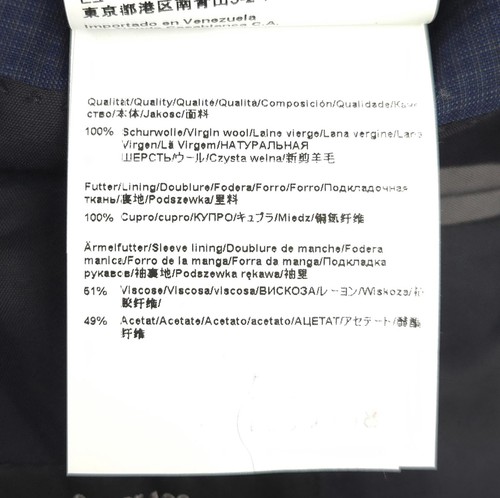 東京都港区南青山5-2-1
Importado en Venezuela
Qualität/Quality/Qualité/Qualità/Composición/Qualidade/Каче
ство/本体/Jakość/面料
100% Schurwolle/Virgin wool/Laine vierge/Lana vergine/Lana
Virgen/Lã Virgem/НАТУРАЛЬНАЯ
ШЕРСТЬ/ウール/Czysta wełna/新剪羊毛
Futter/Lining/Doublure/Fodera/Forro/Forro/Подкладочная
ткань/裏地/Podszewka/里料
100% Cupro/cupro/КУПРО/キュプラ/Miedź/铜氨纤维
Ärmelfutter/Sleeve lining/Doublure de manche/Fodera
manica/Forro de la manga/Forra da manga/Подкладка
рукавов/袖裏地/Podszewka rękawa/袖里
51% Viscose/Viscosa/viscosa/ВИСКОЗА/レーヨン/Wiskoza/粘
胶纤维/
49% Acetat/Acetate/Acetato/acetato/АЦЕТАТ/アセテート/醋酯
纤维